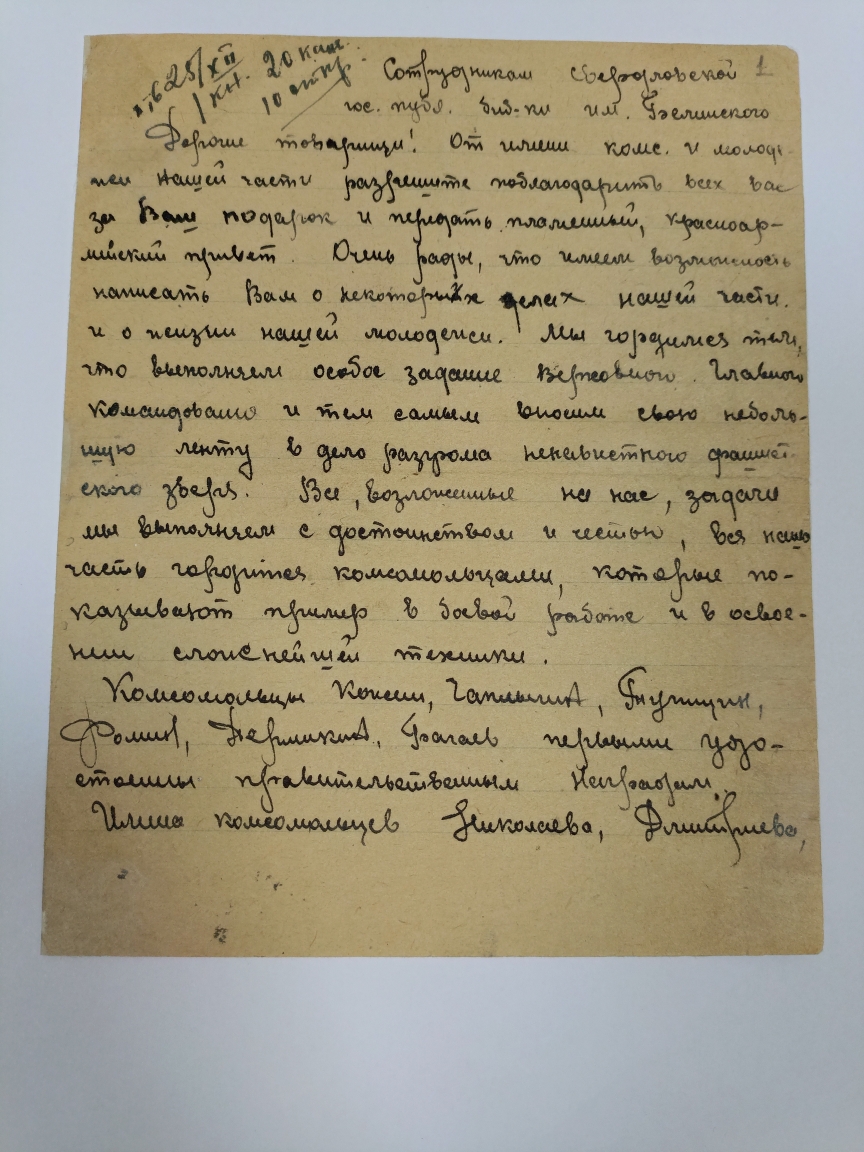 отв 25/XII
1 кн. 20 кам.
10 откр.
1
Сотрудникам Свердловской
гос. публ. биб-ки им. Белинского
Дорогие товарищи! От имени комс. и молоде-
жи нашей части разрешите поблагодарить всех вас
за Ваш подарок и передать пламенный, красноар-
мейский привет. Очень рады, что имеем возможность
написать Вам о некоторых делах нашей части.
и о жизни нашей молодежи. Мы гордимся тем,
что выполняем особое задание Верховного Главного
командования и тем самым вносим свою неболь-
шую лепту в дело разгрома ненавистного фашист-
ского зверя. Все, возложенные на нас, задачи
мы выполняем с достоинством и честью, вся наша
часть гордится комсомольцами, которые по-
казывают пример в боевой работе и в освое-
нии сложнейшей техники.
Комсомольцы Кокшин, Чаплыгин,
Фомин, Пермикин, Багаев первыми удо-
стоены правительственным наградам.
Имена комсомольцев Николаева, Дмитриева,